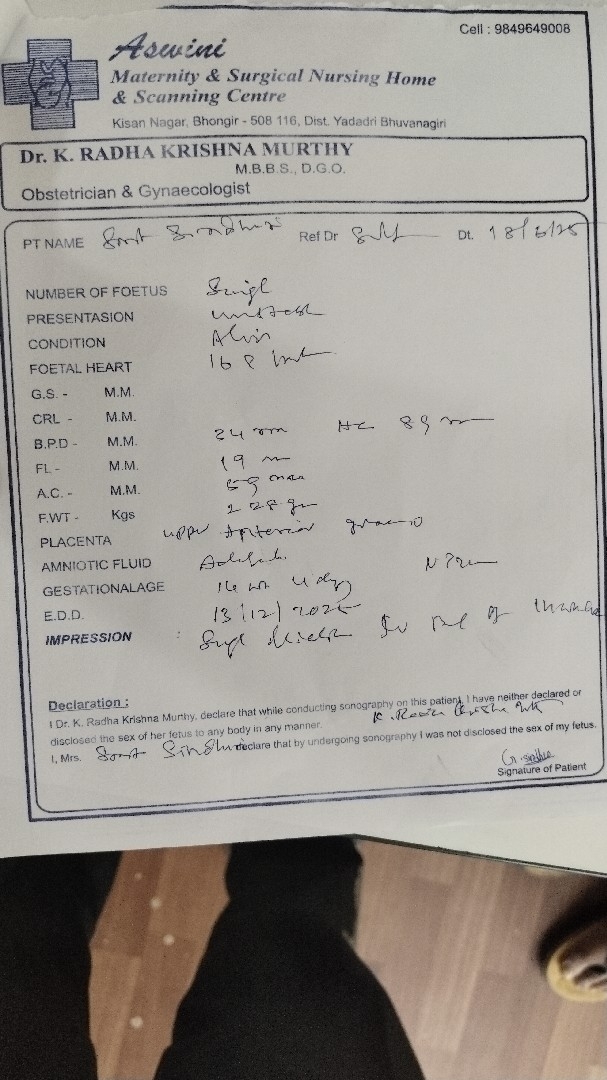 Cell : 9849649008
Aswini
Maternity & Surgical Nursing Home
& Scanning Centre
Kisan Nagar, Bhongir - 508 116, Dist. Yadadri Bhuvanagiri
Dr. K. RADHA KRISHNA MURTHY
M.B.B.S., D.G.O.
Obstetrician & Gynaecologist
PT NAME Smt Ref Dr Self Dt. 18/6/25
NUMBER OF FOETUS Single
PRESENTASION
CONDITION Alive
FOETAL HEART
G.S. - M.M.
CRL - M.M.
B.P.D - M.M. HC 89
FL - M.M. 19
A.C. - M.M. 59
F.WT - Kgs
PLACENTA upper Anterior
AMNIOTIC FLUID
GESTATIONALAGE 14
E.D.D. 13/12/2025
IMPRESSION :
Declaration :
I Dr. K. Radha Krishna Murthy, declare that while conducting sonography on this patient, I have neither declared or
disclosed the sex of her fetus to any body in any manner.
I, Mrs. Smt Sindhu declare that by undergoing sonography I was not disclosed the sex of my fetus.
G. Sindhu
Signature of Patient